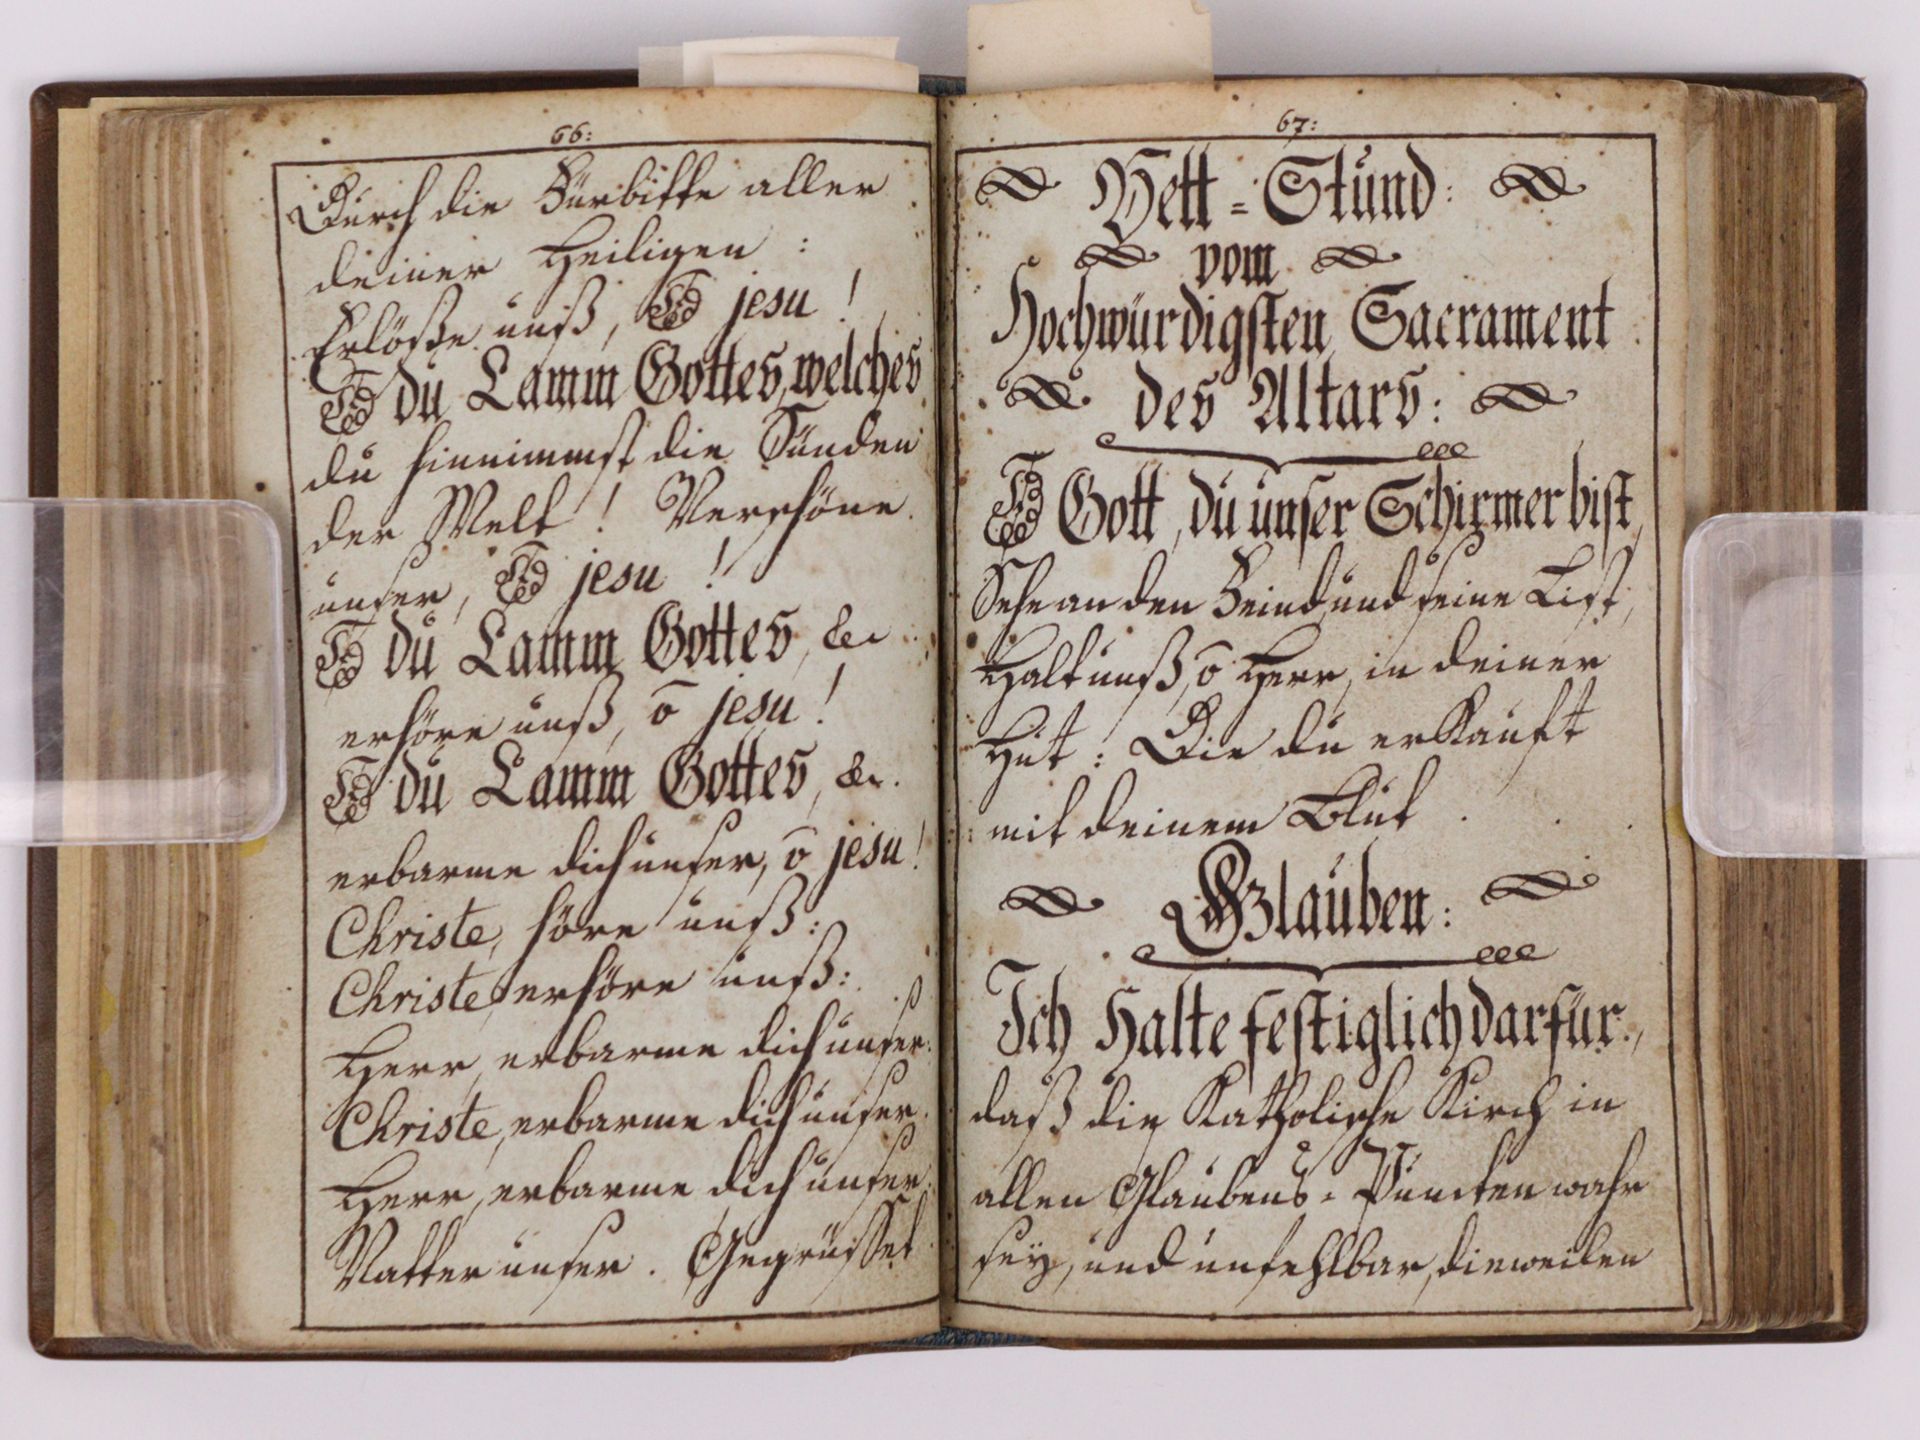 66:
Durch die Fürbitte aller
deiner Heiligen :
Erlöße unß, O jesu !
O du Lamm Gottes, welches
du hinnimmst die Sünden
der Welt ! Verschöne
unser, O jesu !
O du Lamm Gottes, &c
erhöre unß, ō jesu !
O du Lamm Gottes, &c.
erbarme dich unser, ō jesu !
Christe, höre unß:
Christe, erhöre unß:
Herr, erbarme dich unser.
Christe, erbarme dich unser.
Herr, erbarme dich unser.
Vatter unser. Gegrüsset
67:
Bett = Stund :
vom
Hochwürdigsten Sacrament
des Altars :
O Gott, du unser Schirmer bist,
Sehe an den Feind und seine List,
Halt unß, ō Herr, in deiner
Hüt : Die du erkauft
mit deinem Blut .
Glauben :
Ich Halte festiglich darfür,
daß die Katholische Kirch in
allen Glaubens = Puncten wahr
sey, und unfehlbar, dieweilen